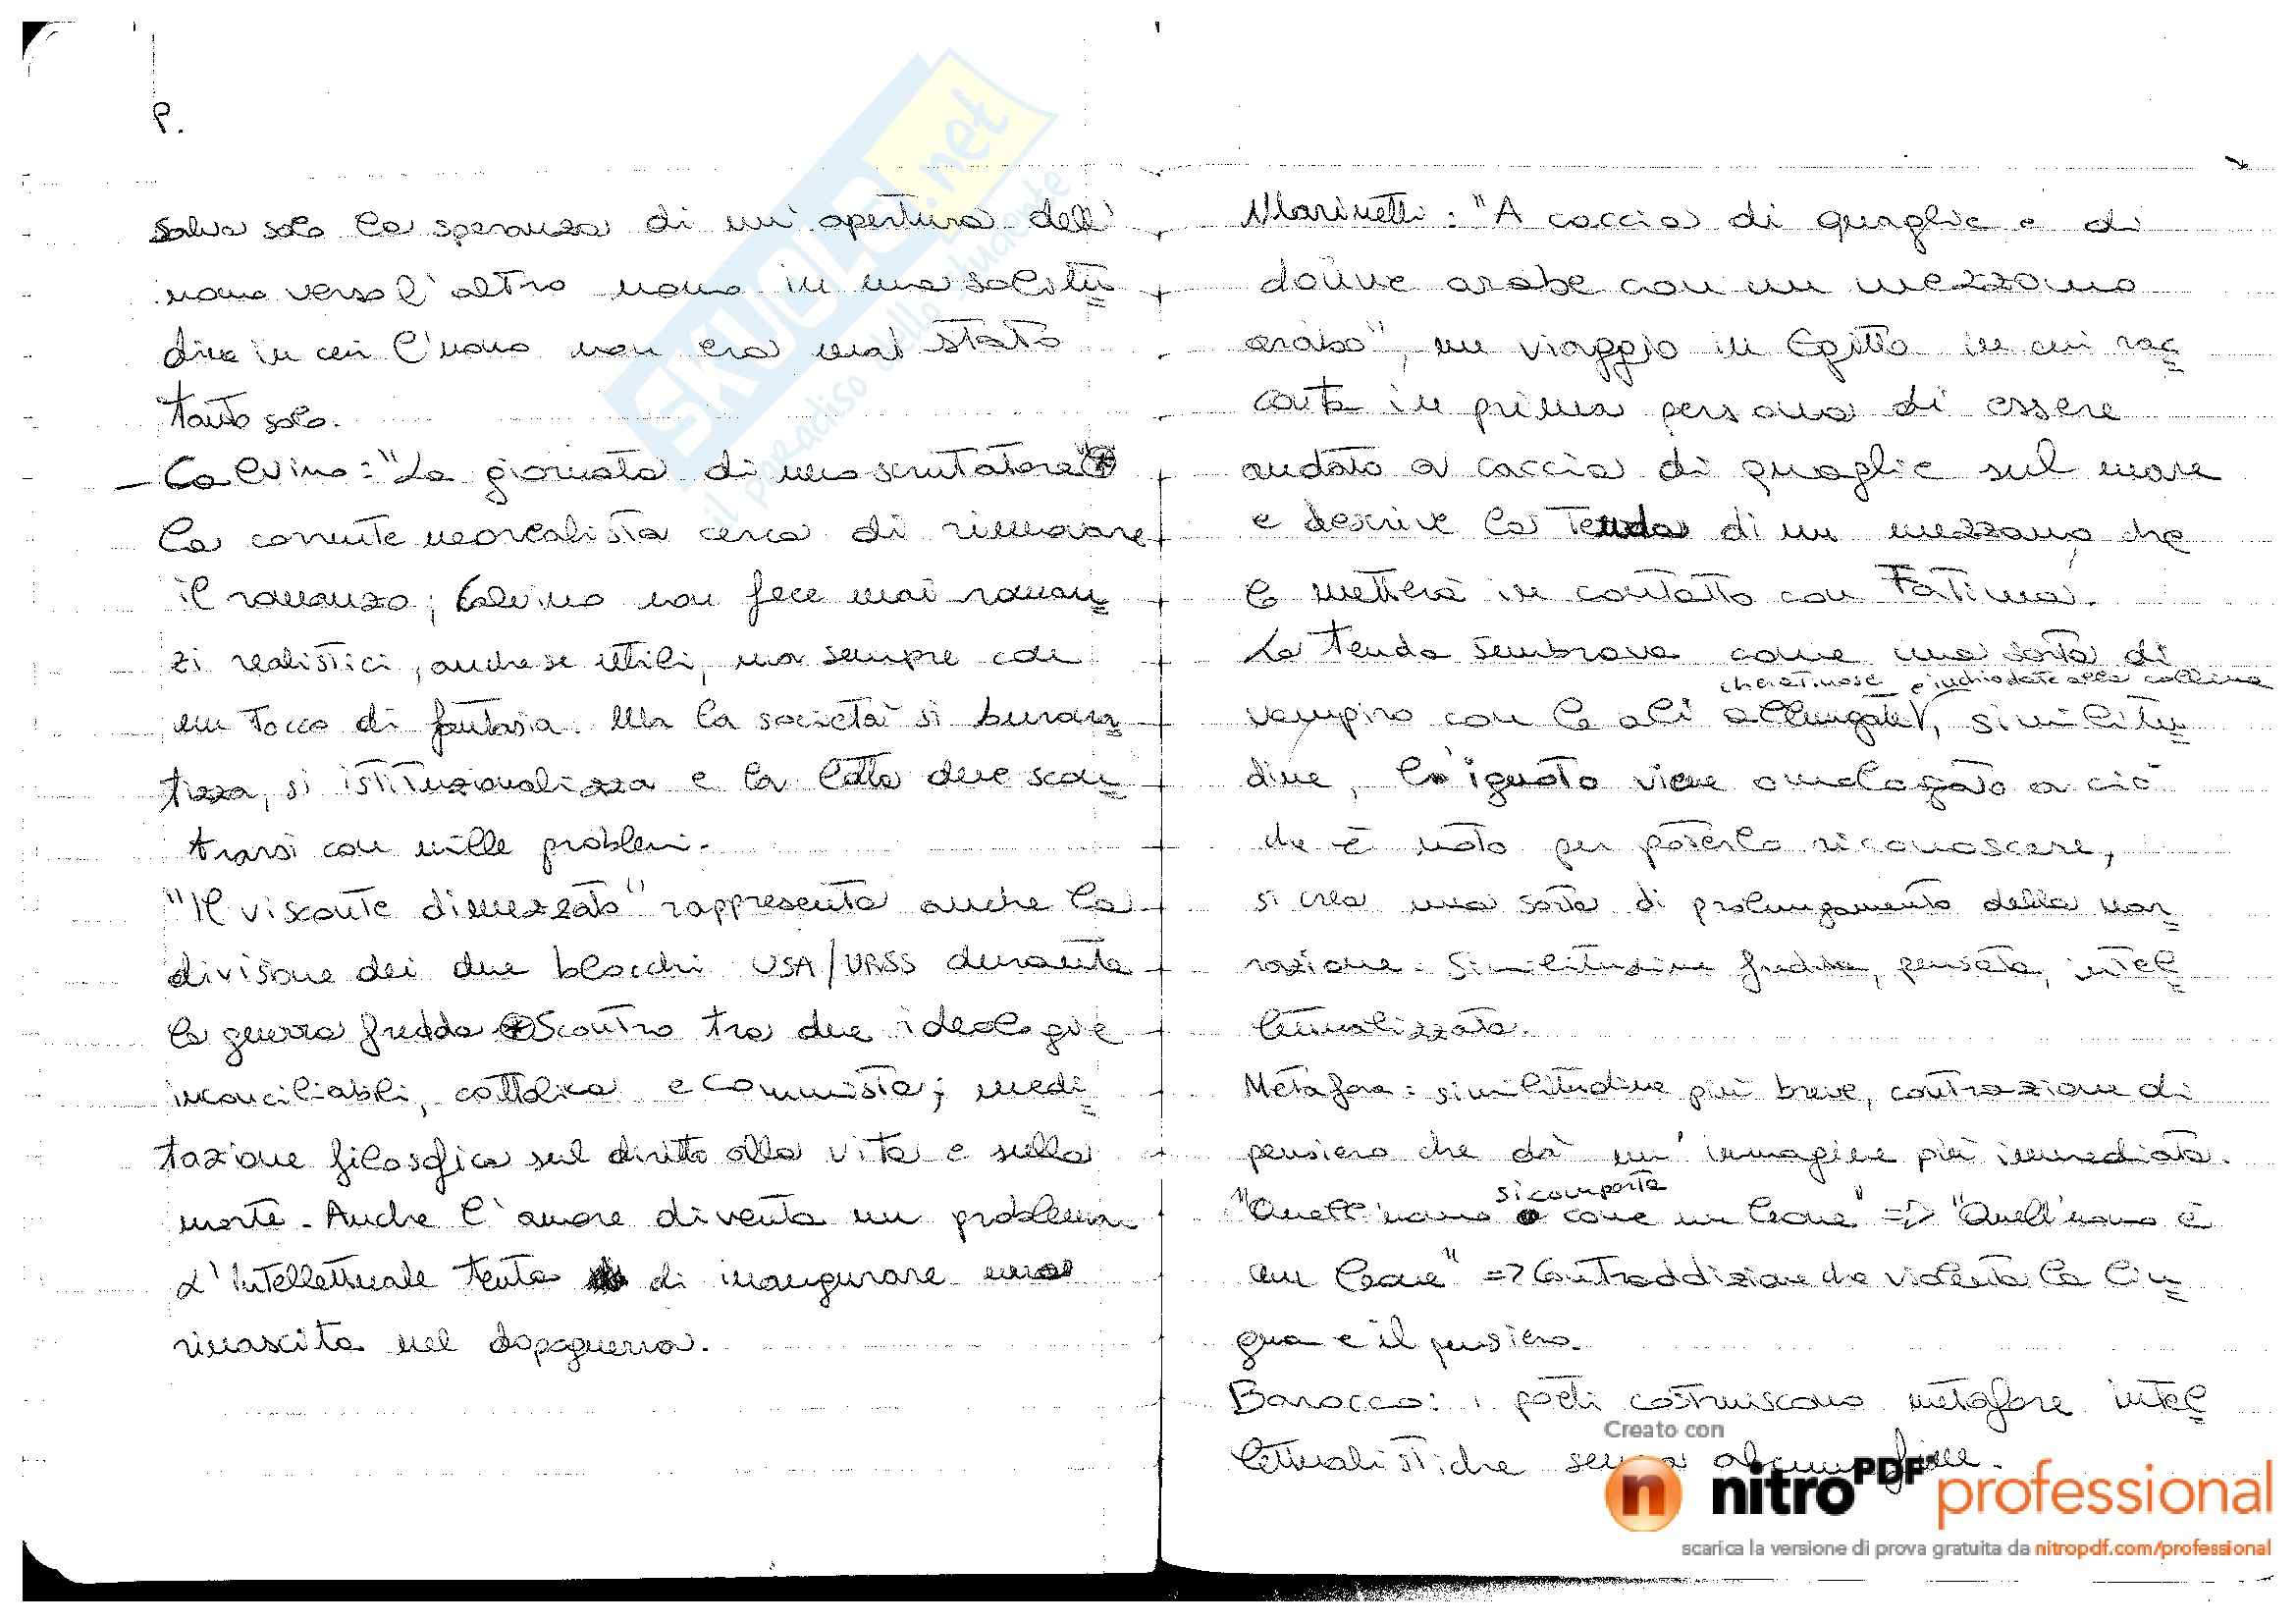 P.
salva solo la speranza di un'apertura dell'
uomo verso l'altro uomo in una solitu=
dine in cui l'uomo non era mai stato
tanto solo.
- Calvino: "La giornata di uno scrutatore"
la corrente neorealista cerca di rinnovare
il romanzo; Calvino non fece mai roman=
zi realistici, anche se utili, ma sempre con
un tocco di fantasia. Ma la società si buron=
tizza, si istituzionalizza e la lotta deve scon=
trarsi con mille problemi.
"Il visconte dimezzato" rappresenta anche la
divisione dei due blocchi USA/URSS durante
la guerra fredda Scontro tra due ideologie
inconciliabili, cattolica e comunista; medi=
tazione filosofica sul diritto alla vita e sulla
morte. Anche l'amore diventa un problema
L'intellettuale tenta di inaugurare una
rinascita nel dopoguerra.
Marinetti: "A caccia di quaglie e di
donne arabe con un mezzano
arabo", un viaggio in Egitto in cui rac=
conta in prima persona di essere
andato a caccia di quaglie sul mare
e descrive la tenda di un mezzano, che
lo metterà in contatto con Fatima.
La tenda sembrava come una sorta di
vampiro con le ali allungate, e inchiodate alla collina, similitu=
dine, l'ignoto viene omologato a ciò
che è noto per poterlo riconoscere,
si crea una sorta di prolungamento della nar=
razione. Similitudine fredda, pensata, intel=
lettualizzata.
Metafora: similitudine più breve, contrazione di
pensiero che dà un'immagine più immediata.
"Quell'uomo si comporta come un leone" => "Quell'uomo è
un leone" => Contraddizione che violenta la lin=
gua e il pensiero.
Barocco: i poeti costruiscono metafore intel=
lettualistiche senza alcun fine.
SKUOLA.net
il paradiso dello studente
Creato con
nitroPDF professional
scarica la versione di prova gratuita da nitropdf.com/professional